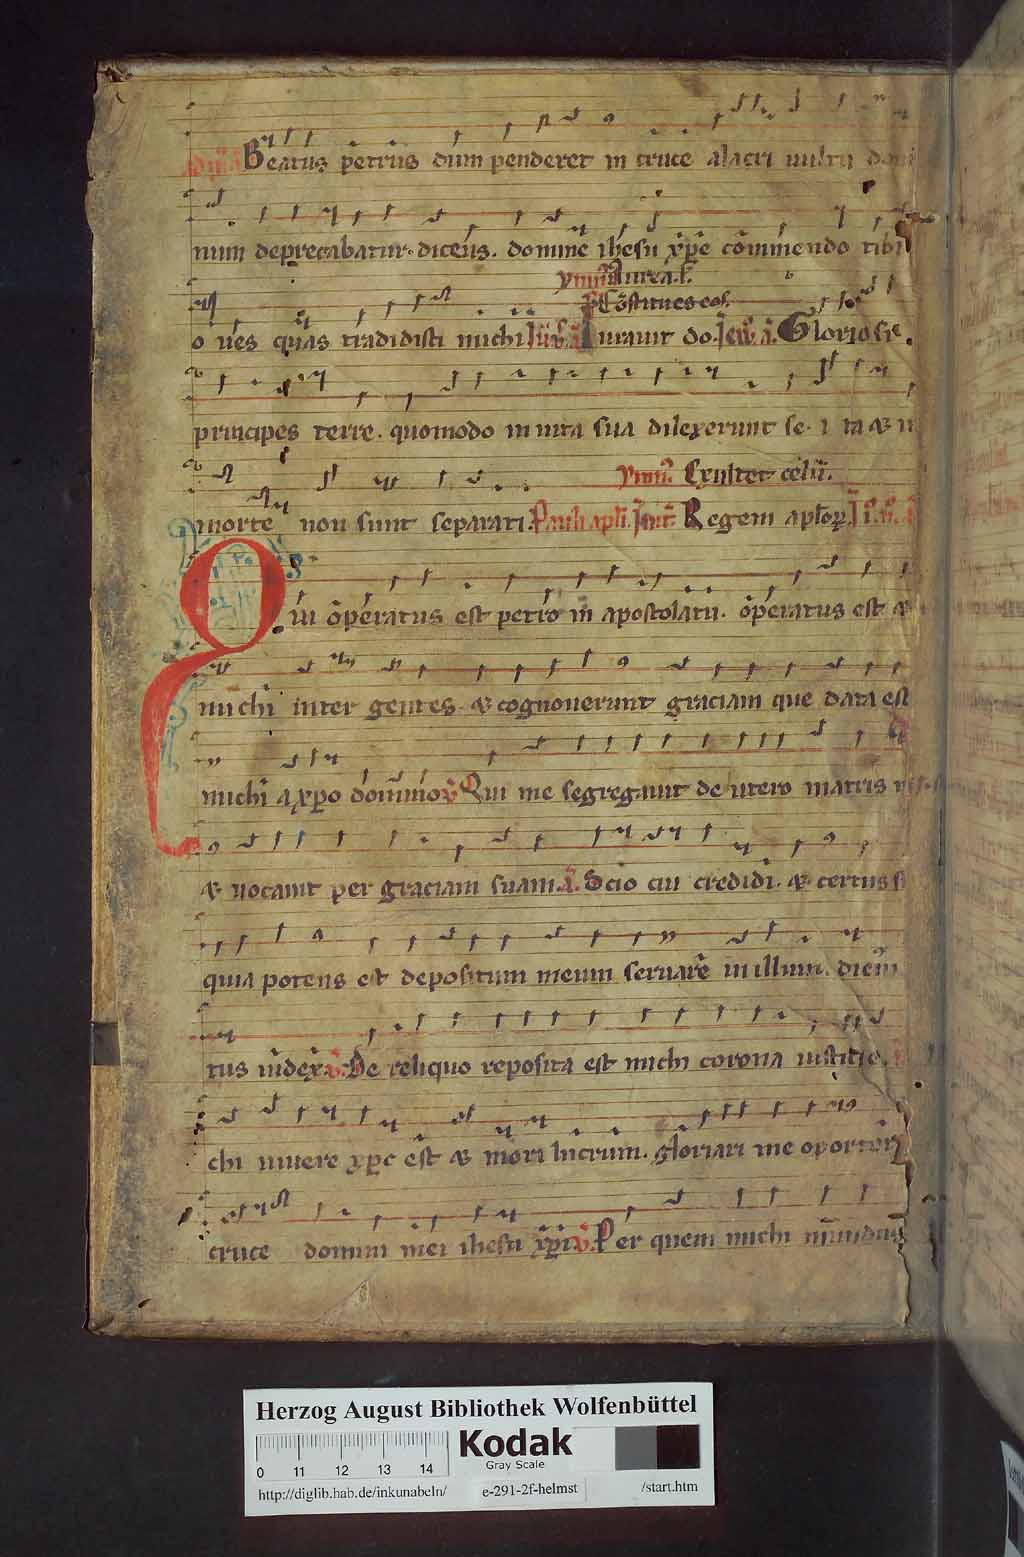 Beatus petrus dum penderet in cruce alacri uultu domi
num deprecabatur. dicens. domine ihesu xp̄e cōmmendo tibi
ymn̄ Aurea l.
Cōstitues eos.
o ues quas tradidisti michi Iurauit do. Gloriosi
principes terre. quomodo in uita sua dilexerunt se. i ta & i
ymn̄. Exultet celū.
morte non sunt separati. Pauli apl̄i Inuit̄ Regem apl̄oꝝ
Qui operatus est petro in apostolatu. operatus est &
michi inter gentes. & cognouerunt graciam que data est
michi a xp̄o domino Qui me segregauit de utero matris
& uocauit per graciam suam. a. Scio cui credidi. & certus s
quia potens est depositum meum seruare in illum. diem
tus iudex De reliquo reposita est michi corona iustitie.
chi uiuere xp̄c est & mori lucrum. gloriari me oportet
cruce domini mei ihesu xp̄i Per quem michi mundus
Herzog August Bibliothek Wolfenbüttel
Kodak
Gray Scale
0 11 12 13 14
http://diglib.hab.de/inkunabeln/ e-291-2f-helmst /start.htm